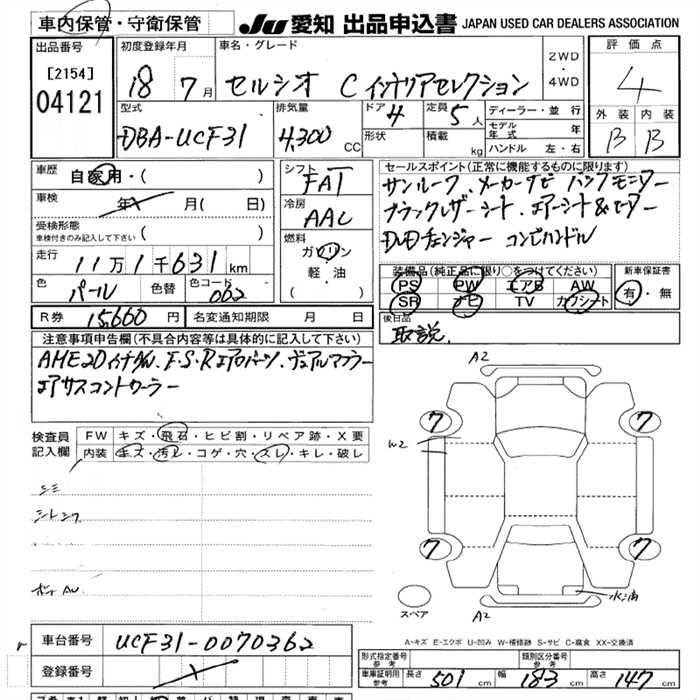 車内保管・守衛保管
JU 愛知 出品申込書 JAPAN USED CAR DEALERS ASSOCIATION
出品番号 初度登録年月 車名・グレード 2WD・4WD 評価点
[2154]
04121
18 7月 セルシオ C インテリアセレクション 4
型式 排気量 ドア 4 定員 5人 ディーラー・並行 外装 内装
DBA-UCF31 4,300 CC 形状 積載 kg モデル年式 年 B B
ハンドル 左・右
車歴 自家用・( ) シフト FAT セールスポイント(正常に機能するものに限ります)
車検 年 月( 日) 冷房 AAC サンルーフ、メーカーナビ バックモニター
受検形態 車検付きのみ記入して下さい ( ) ブラックレザーシート、エアーシート&ヒーター
走行 11万1千631km 燃料 ガソリン・軽・油 ( ) DVDチェンジャー コンビハンドル
色 パール 色替 色コード 062
装備品(純正品に限り○をつけてください) 新車保証書
PS PW エアB AW 有・無
SR ナビ TV カワシート
R券 15,660円 名変通知期限 月 日 後日品
取説
注意事項申告欄(不具合内容等は具体的に記入して下さい)
AME20インチAW、F.S.Rエアロパーツ、デュアルマフラー
エアサスコントローラー
検査員記入欄 FW キズ・飛石・ヒビ割・リペア跡・X要
内装 キズ・汚レ・コゲ・穴・スレ・キレ・破レ
A2
7 7
W2
7 7
スペア A2
A-キズ E-エクボ U-凹み W-補修跡 S-サビ C-腐食 XX-交換済
車台番号 UCF31-0070362
登録番号
形式指定番号 参考 類別区分番号 参考
車庫証明用参考 長さ 501 cm 幅 183 cm 高さ 147 cm